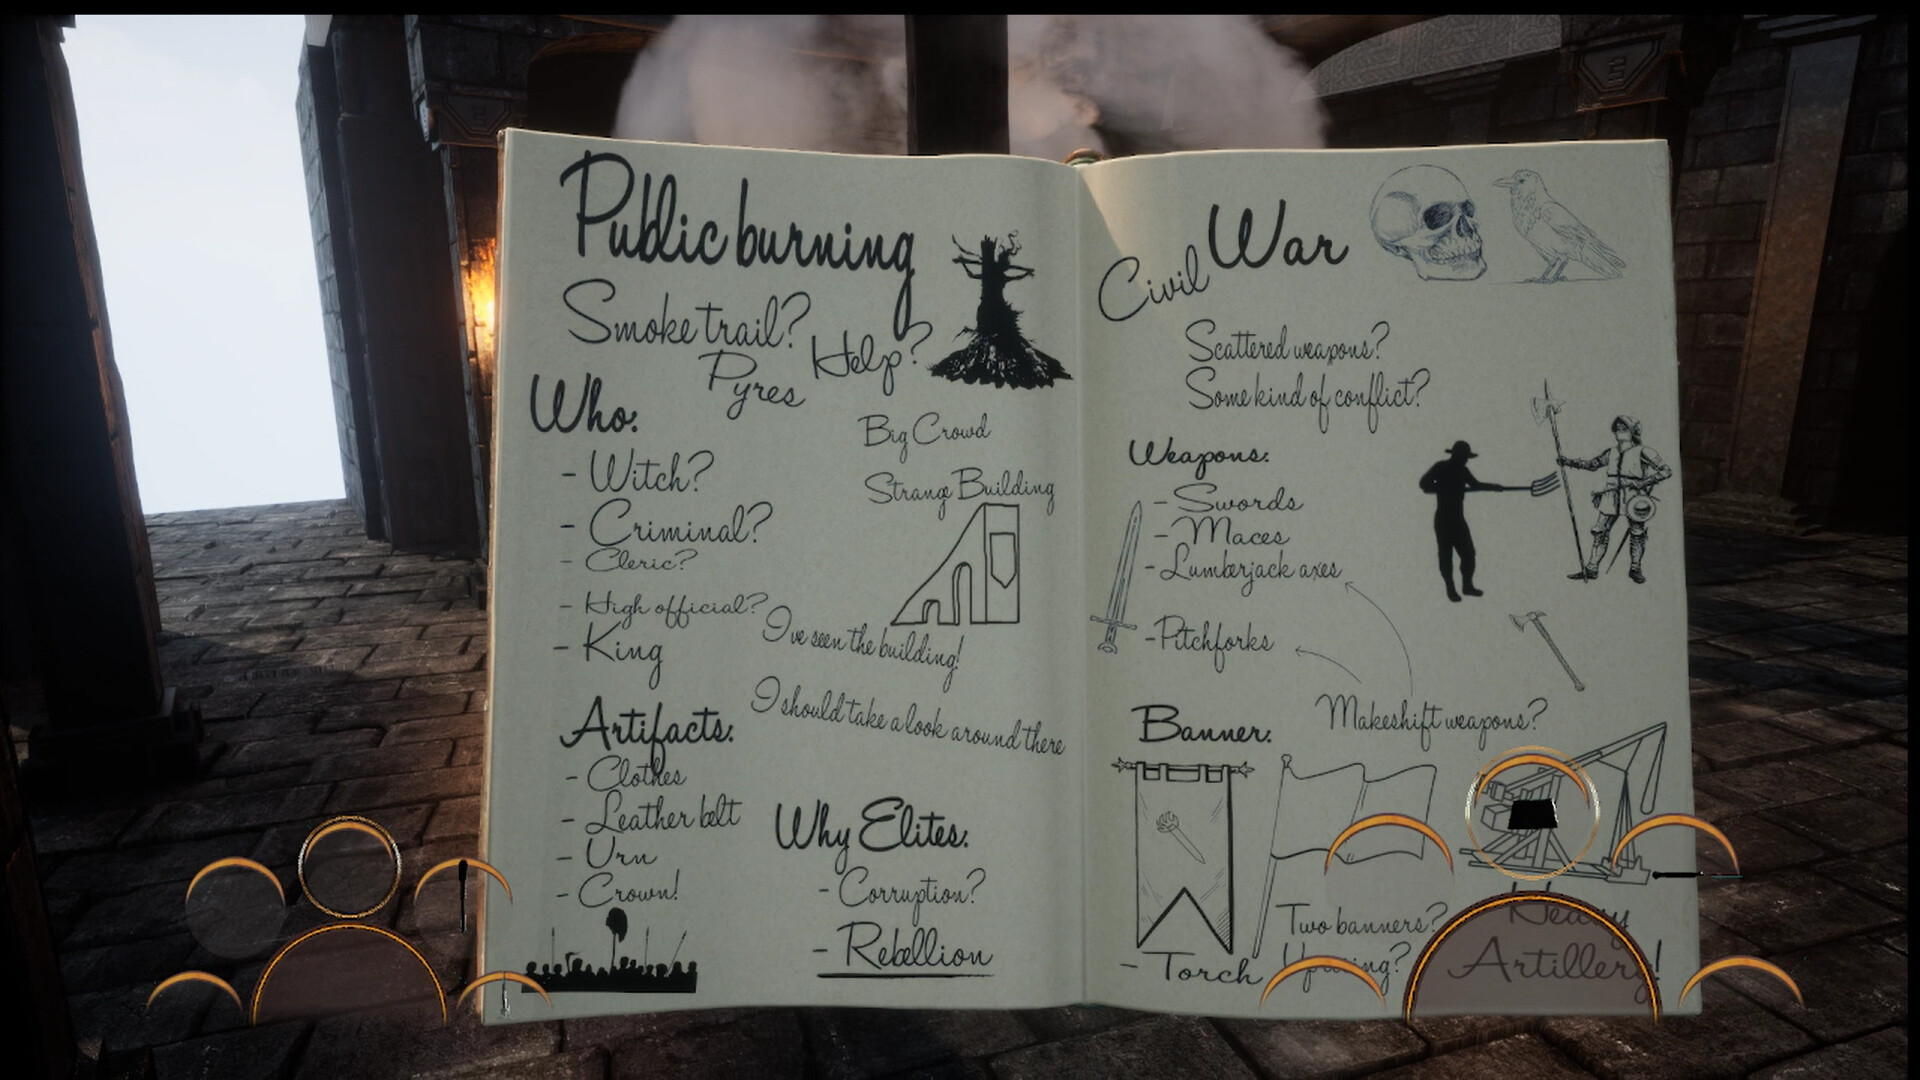 Public burning
Smoke trail?
Help?
Pyres
Who:
- Witch?
- Criminal?
- Cleric?
- High official?
- King
Big Crowd
Strange Building
I've seen the building!
I should take a look around there
Artifacts:
- Clothes
- Leather belt
- Urn
- Crown!
Why Elites:
- Corruption?
- Rebellion
Civil War
Scattered weapons?
Some kind of conflict?
Weapons:
- Swords
- Maces
- Lumberjack axes
- Pitchforks
Makeshift weapons?
Banner:
- Torch
Two banners?
Uprising?
Heavy
Artillery!